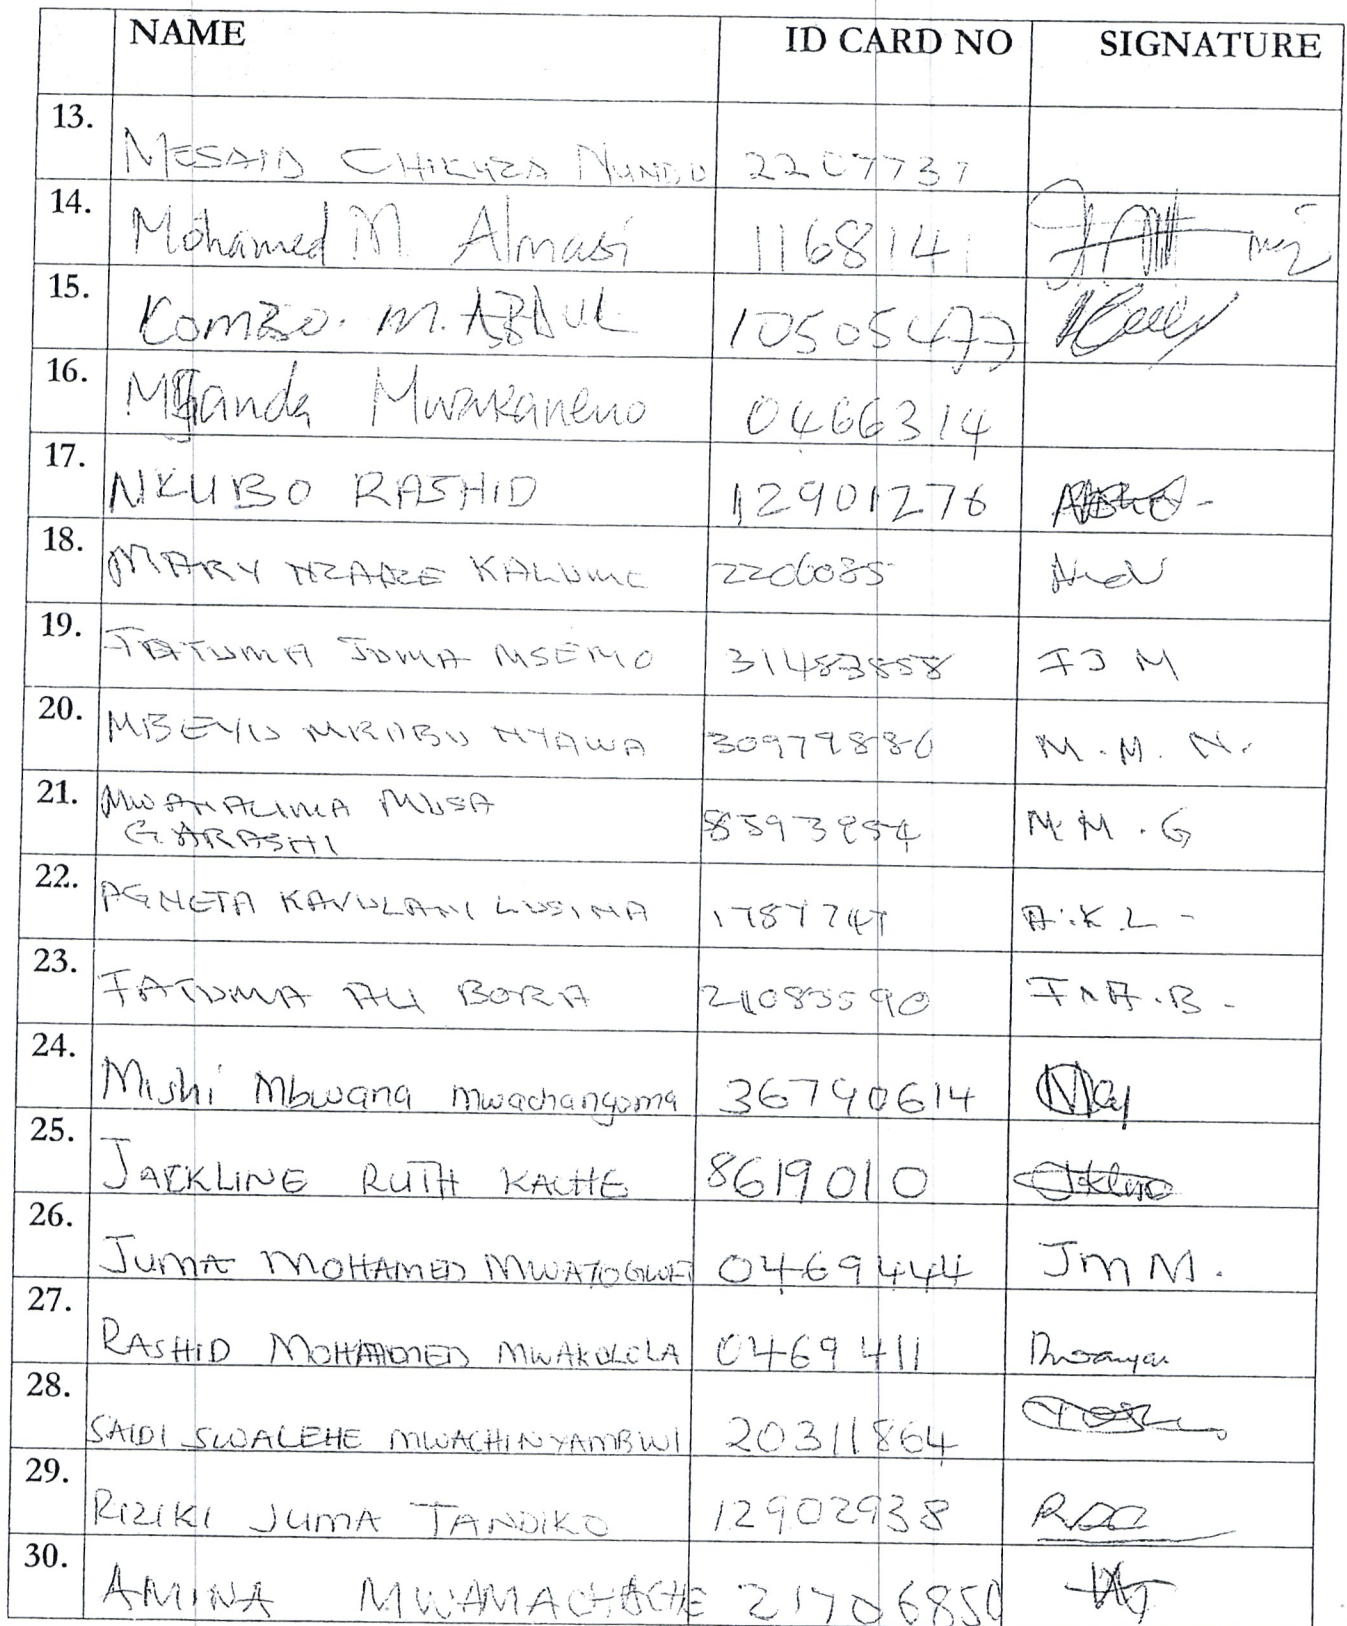 NAME ID CARD NO SIGNATURE
13. MESAID CHIKUZA NUNDU 2207737
14. Mohamed M Almasi 1168141
15. KOMBO. M. ABDUL 10505477
16. Mwakaneno 0466314
17. NKUBO RASHID 12901276
18. MARY NZADZE KALUME 2206085
19. FATUMA JUMA MSEMO 31483858 FJM
20. MBEYU MRABU NYAWA 30979886 M.M.N.
21. MWANALIMA MUSA
GARASHI 8593954 M.M.G
22. AGNETA KAVULANI LUSINA 1787747 A.K.L -
23. FATUMA ALI BORA 21083590 F.A.B -
24. Mishi Mbwana mwachangoma 36790614
25. JACKLINE RUTH KACHE 8619010
26. JUMA MOHAMED MWATOGWE 0469444 JMM.
27. RASHID MOHAMMED MWAKULOLA 0469411
28. SAIDI SWALEHE MWACHINYAMBWI 20311864
29. RIZIKI JUMA TANDIKO 12902938
30. AMINA MWAMACHACHE 21706850